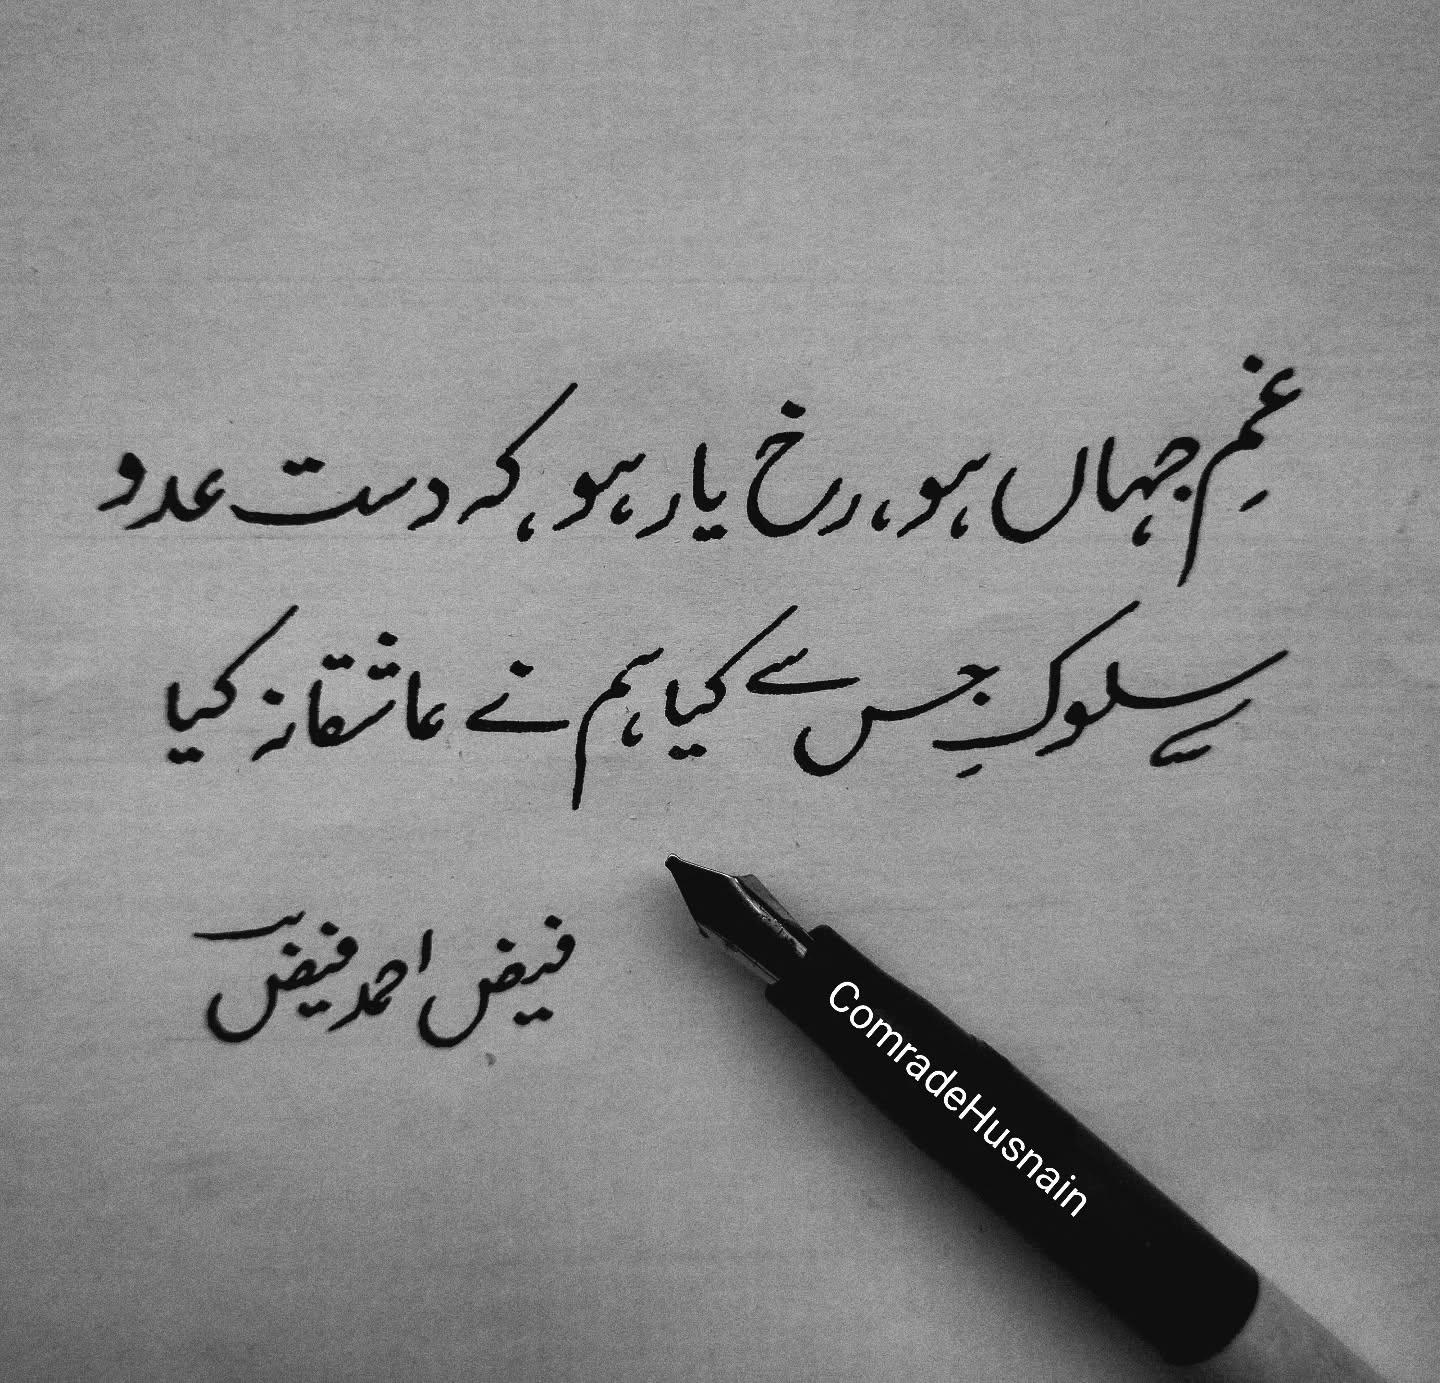 غمِ جہاں ہو، رخ یار ہو، کہ دست عدو
سلوکِ جس سے کیا ہم نے عاشقانہ کیا
فیض احمد فیض
ComradeHusnain